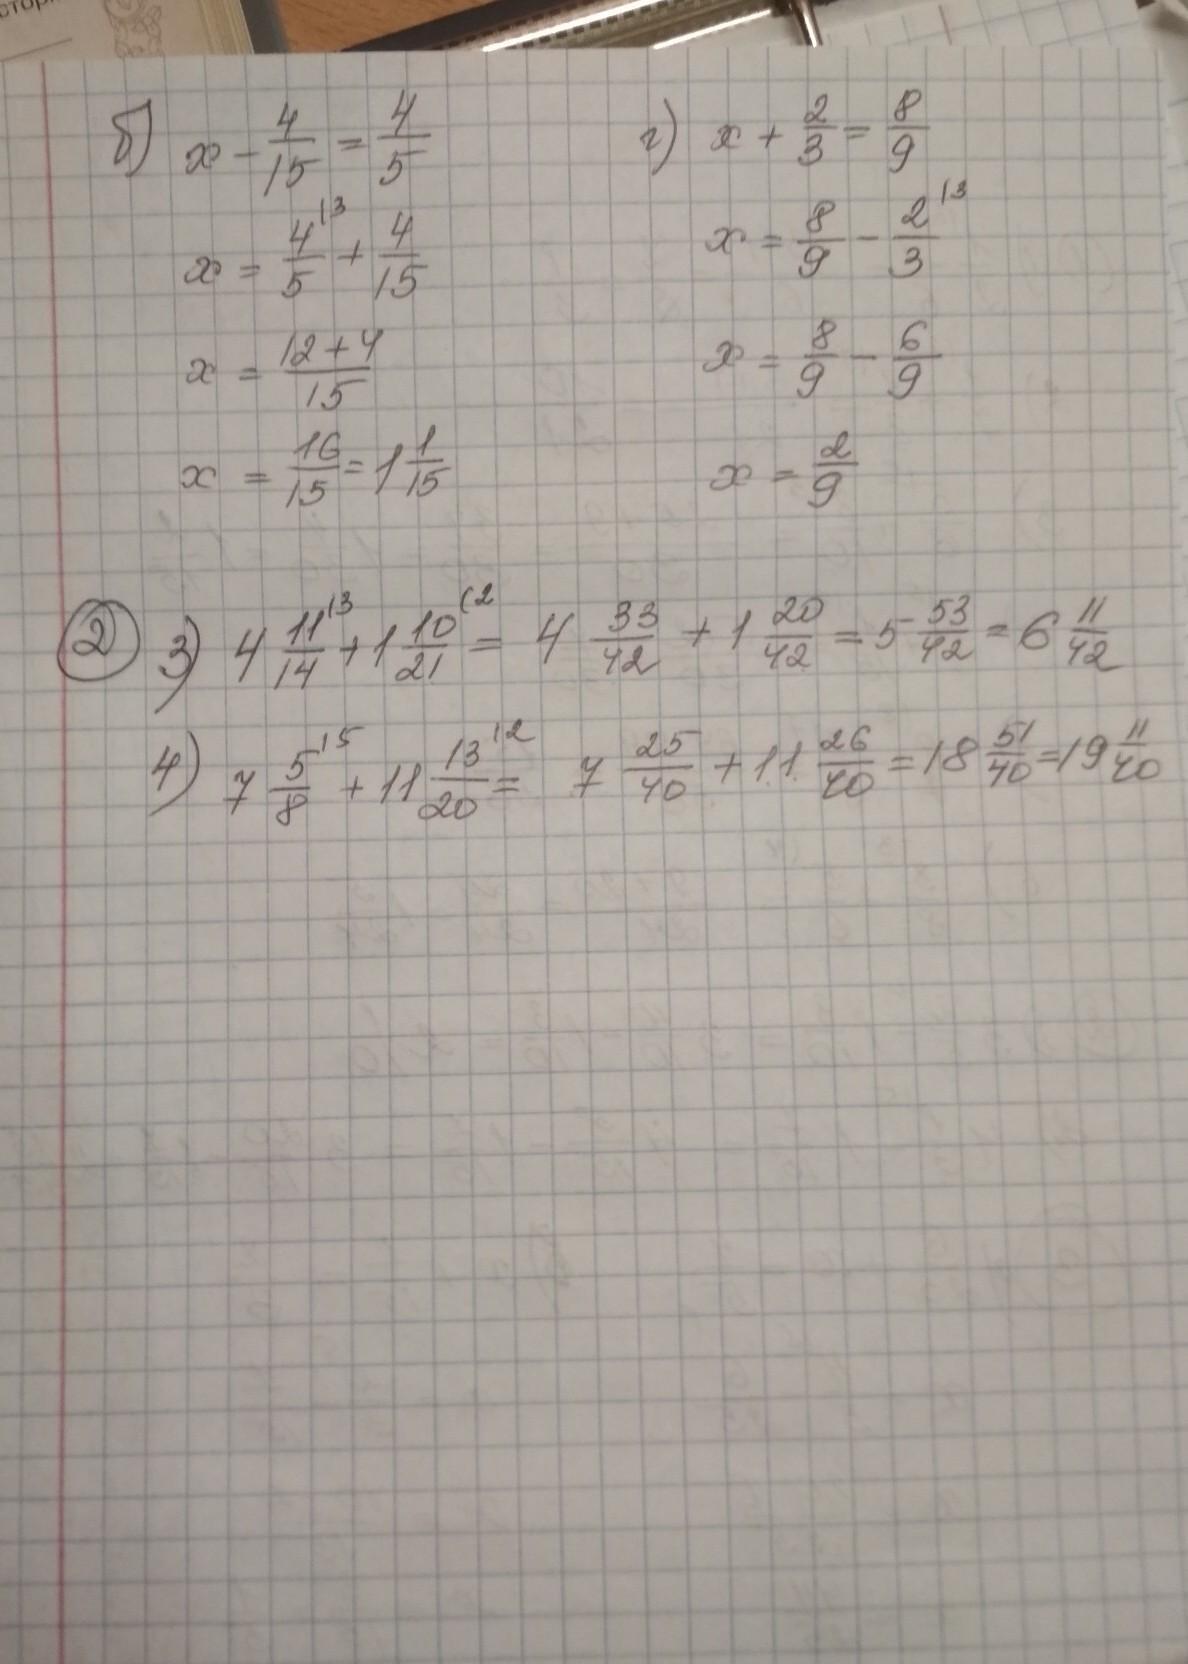 стори
б) x - 4/15 = 4/5
x = 4/5 ⁽³ + 4/15
x = (12+4)/15
x = 16/15 = 1 1/15
г) x + 2/3 = 8/9
x = 8/9 - 2/3 ⁽³
x = 8/9 - 6/9
x = 2/9
② 3) 4 11/14 ⁽³ + 1 10/21 ⁽² = 4 33/42 + 1 20/42 = 5 53/42 = 6 11/42
4) 7 5/8 ⁽⁵ + 11 13/20 ⁽² = 7 25/40 + 11 26/40 = 18 51/40 = 19 11/40